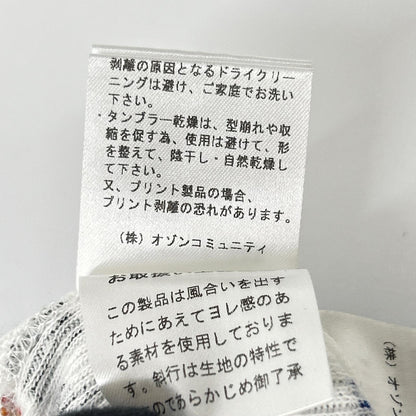 剥離の原因となるドライクリー
ニングは避け、ご家庭でお洗い
下さい。
・タンブラー乾燥は、型崩れや収
縮を促す為、使用は避けて、形
を整えて、陰干し・自然乾燥し
て下さい。
又、プリント製品の場合、
プリント剥離の恐れがあります。
(株) オゾンコミュニティ
お取扱
この製品は風合いを出す
ためにあえてヨレ感のあ
る素材を使用しておりま
す。斜行は生地の特性で
のであらかじめ御了承
(株) オゾ